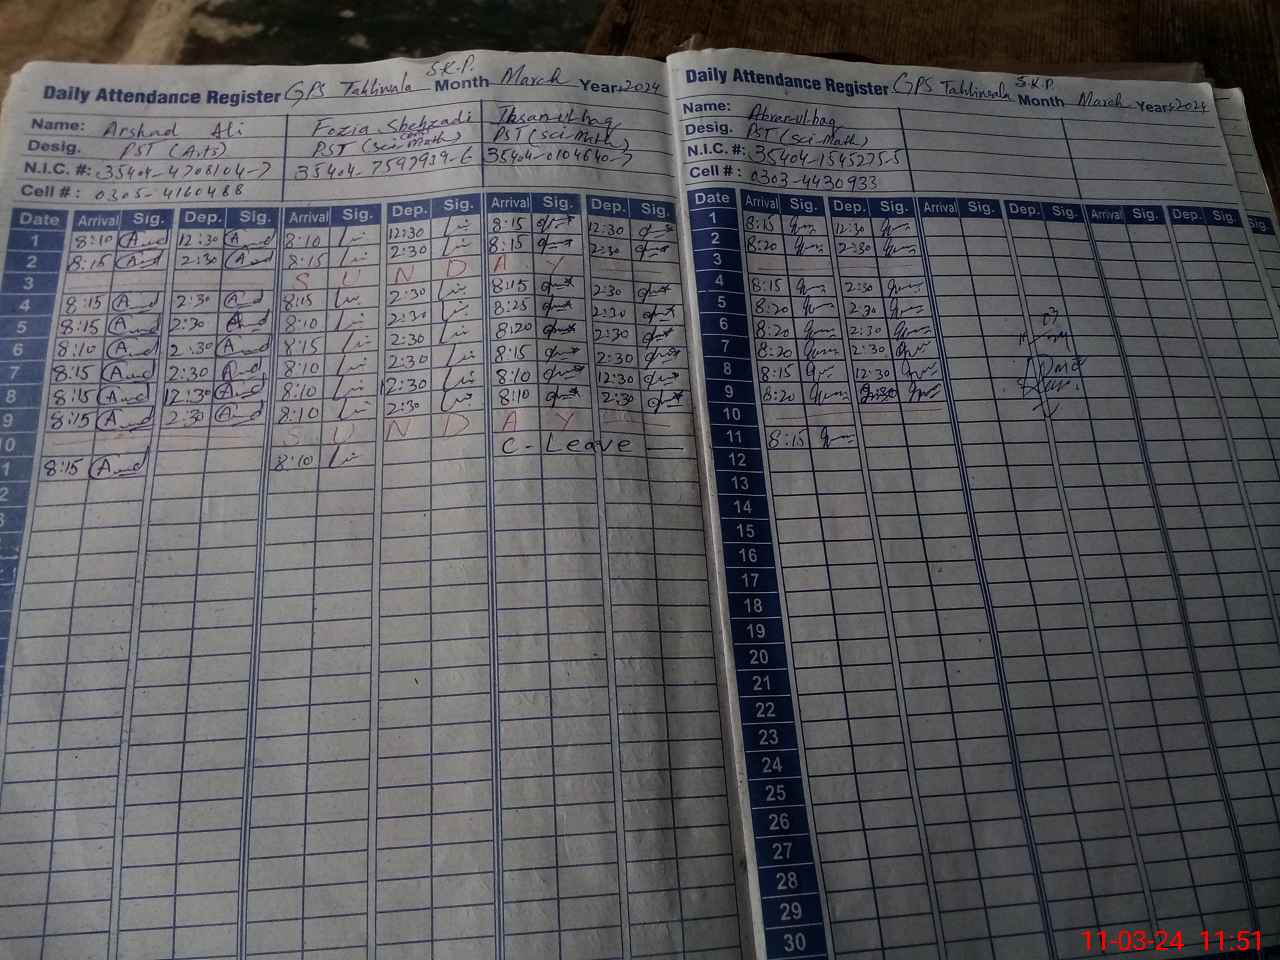 Daily Attendance Register GPS Tahliwala S.K.P. Month March Year 2024
Name: Arshad Ali Fozia Shehzadi Ihsan-ul-haq
Desig. PST (Arts) PST (Sci-Math) PST (Sci-Math)
N.I.C. #: 35404-4708104-7 35404-7597939-6 35404-0104640-7
Cell #: 0305-4160488
Date Arrival Sig. Dep. Sig. Arrival Sig. Dep. Sig. Arrival Sig. Dep. Sig.
1 8:10 12:30 8:10 12:30 8:15 12:30
2 8:15 2:30 8:15 2:30 8:15 2:30
3 S U N D A Y
4 8:15 2:30 8:15 2:30 8:15 2:30
5 8:15 2:30 8:10 2:30 8:25 2:30
6 8:10 2:30 8:15 2:30 8:20 2:30
7 8:15 2:30 8:10 2:30 8:15 2:30
8 8:15 12:30 8:10 12:30 8:10 12:30
9 8:15 2:30 8:10 2:30 8:10 2:30
10 S U N D A Y
1 8:15 8:10 C-Leave
2
3
Daily Attendance Register GPS Tahliwala S.K.P. Month March Year 2024
Name:
Desig. PST (Sci-Math)
N.I.C. #: 35404-1545275-5
Cell #: 0303-4430933
Date Arrival Sig. Dep. Sig. Arrival Sig. Dep. Sig. Arrival Sig. Dep. Sig.
1 8:15 12:30
2 8:20 2:30
3
4 8:15 2:30
5 8:20 2:30
6 8:20 2:30
7 8:20 2:30
8 8:15 12:30
9 8:20 2:30
10
11 8:15
12
13
14
15
16
17
18
19
20
21
22
23
24
25
26
27
28
29
30
11-03-24 11:51